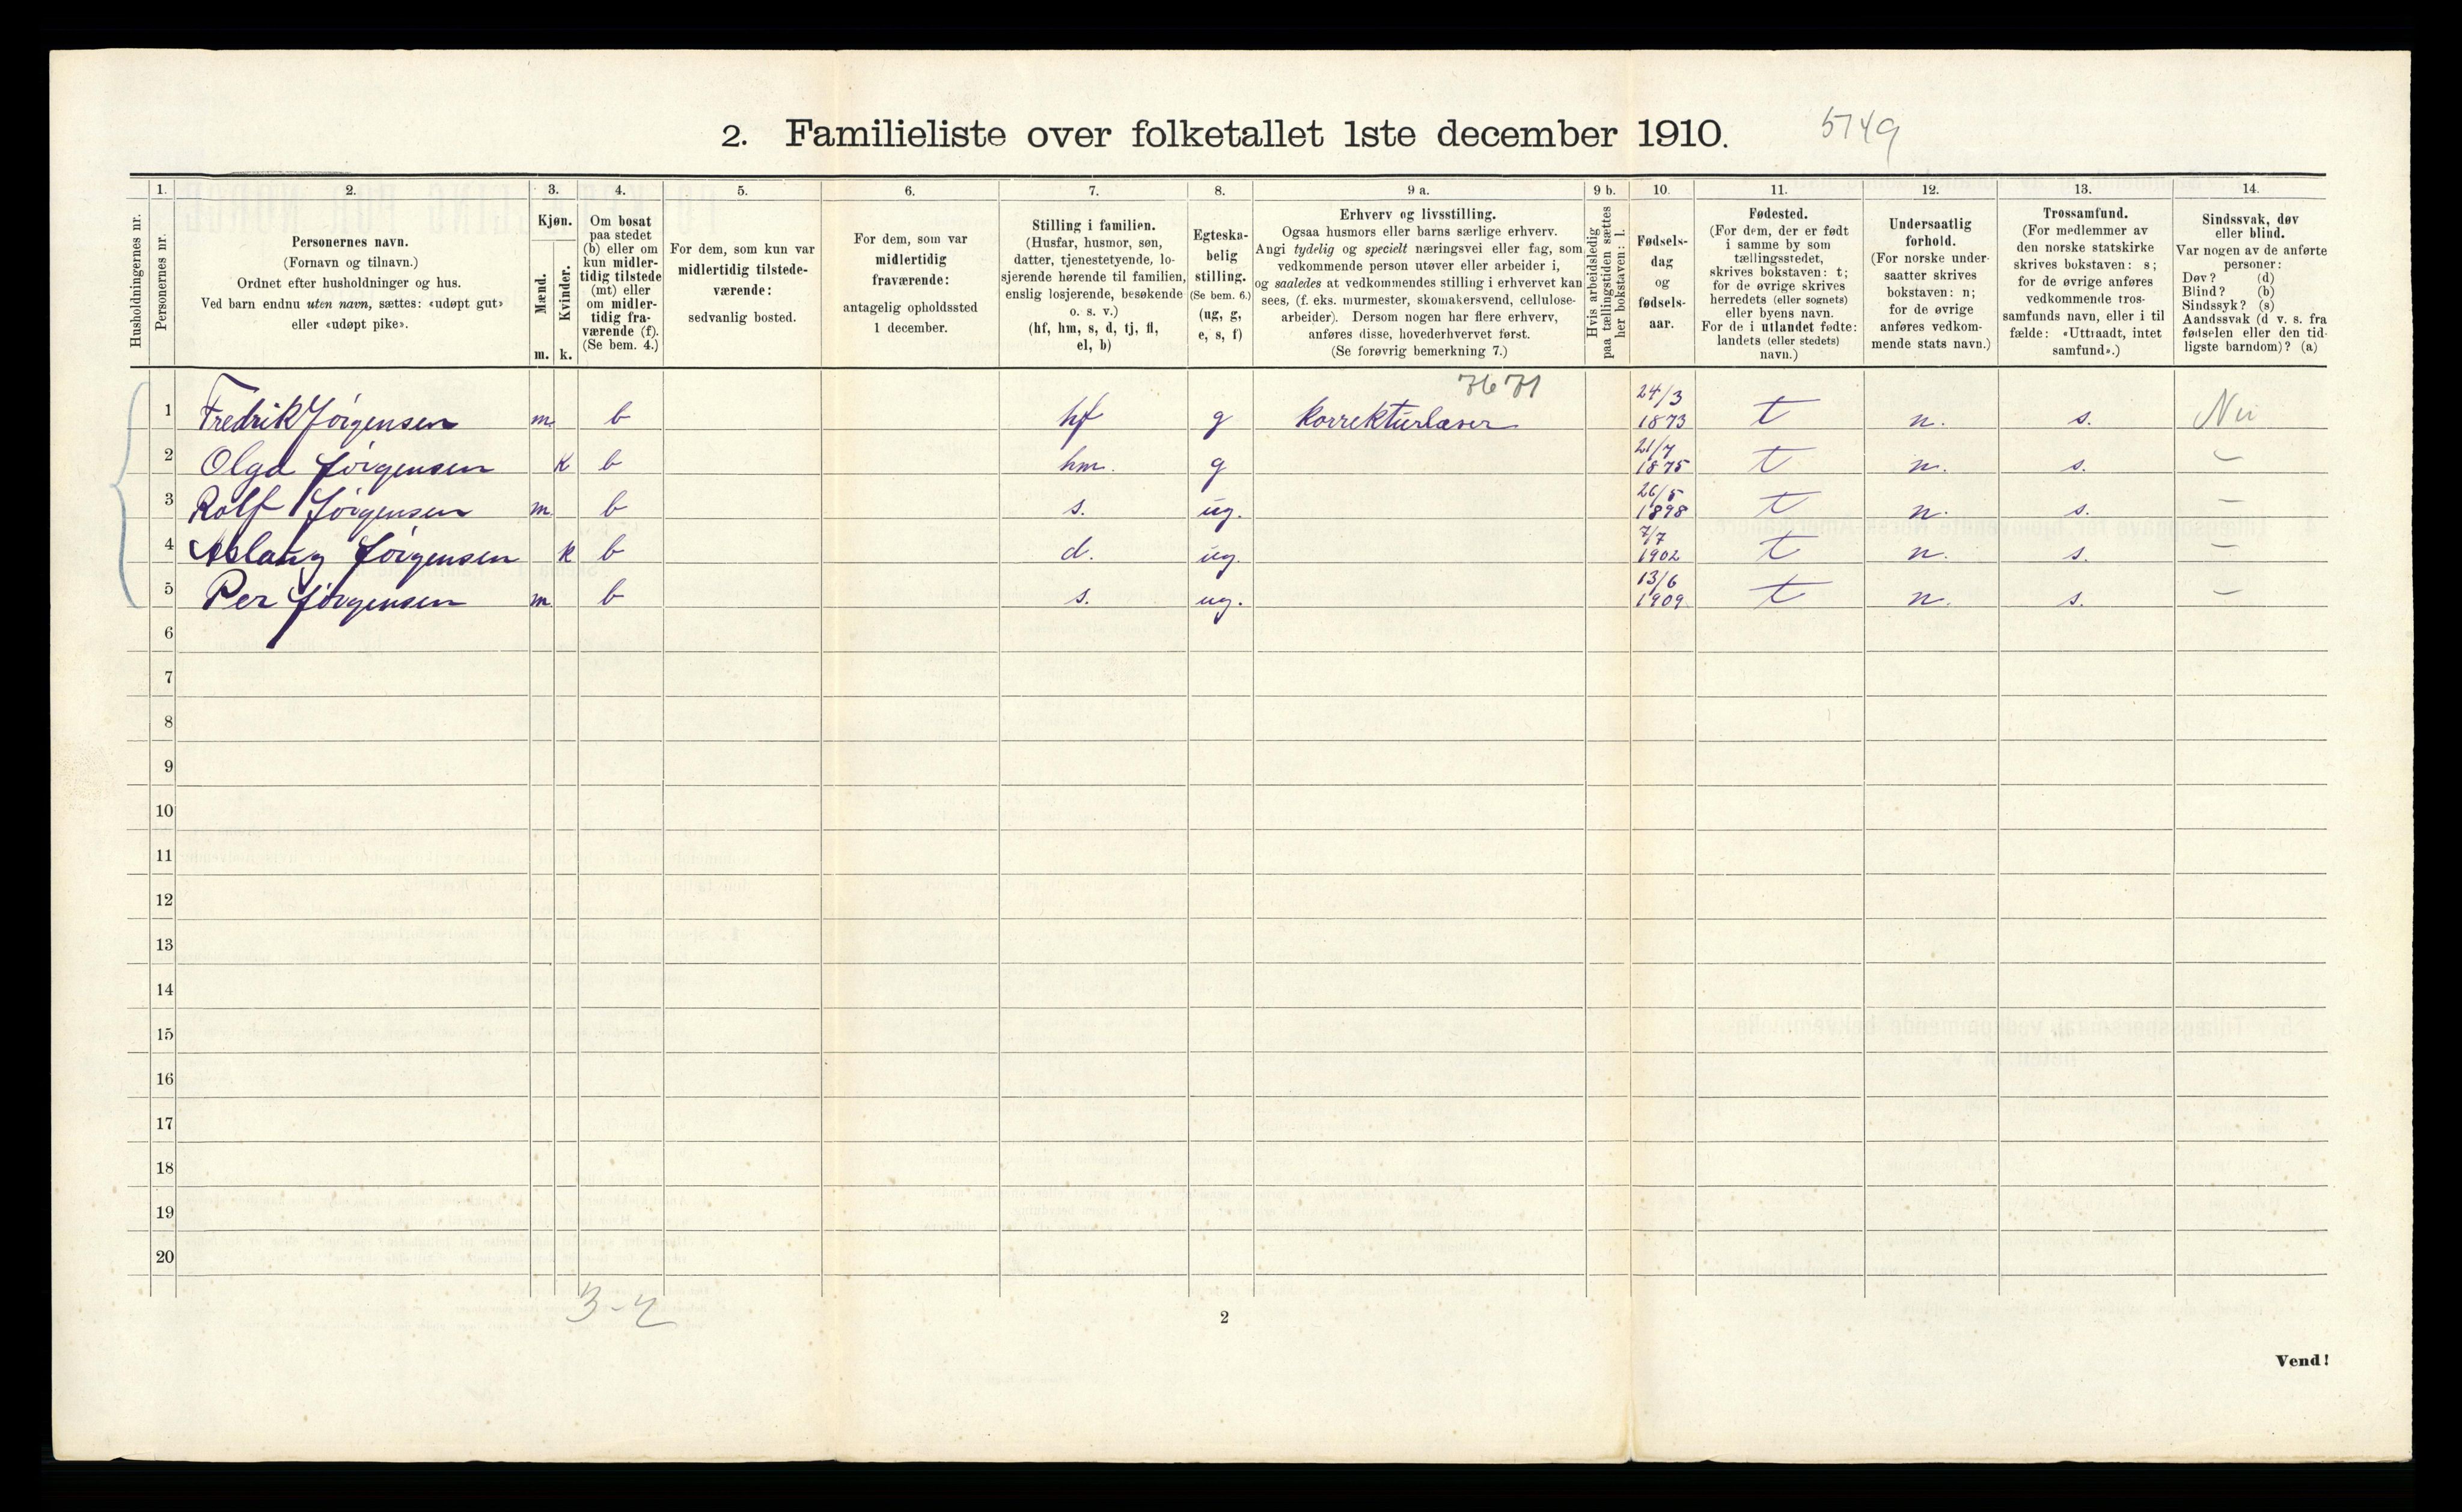 2. Familieliste over folketallet 1ste december 1910. 5749
1. 2. 3. 4. 5. 6. 7. 8. 9 a. 9 b. 10. 11. 12. 13. 14.
Husholdningernes nr.
Personernes nr.
Personernes navn.
(Fornavn og tilnavn.)
Ordnet efter husholdninger og hus.
Ved barn endnu uten navn, sættes: «udøpt gut»
eller «udøpt pike».
Kjøn.
Mænd.
Kvinder.
m. k.
Om bosat
paa stedet
(b) eller om
kun midler-
tidig tilstede
(mt) eller
om midler-
tidig fra-
værende (f).
(Se bem. 4.)
For dem, som kun var
midlertidig tilstede-
værende:
sedvanlig bosted.
For dem, som var
midlertidig
fraværende:
antagelig opholdssted
1 december.
Stilling i familien.
(Husfar, husmor, søn,
datter, tjenestetyende, lo-
sjerende hørende til familien,
enslig losjerende, besøkende
o. s. v.)
(hf, hm, s, d, tj, fl,
el, b)
Egteska-
belig
stilling.
(Se bem. 6.)
(ug, g,
e, s, f)
Erhverv og livsstilling.
Ogsaa husmors eller barns særlige erhverv.
Angi tydelig og specielt næringsvei eller fag, som
vedkommende person utøver eller arbeider i,
og saaledes at vedkommendes stilling i erhvervet kan
sees, (f. eks. murmester, skomakersvend, cellulose-
arbeider). Dersom nogen har flere erhverv,
anføres disse, hovederhvervet først.
(Se forøvrig bemerkning 7.)
Hvis arbeidsledig
paa tællingstiden sættes
her bokstaven: l.
Fødsels-
dag
og
fødsels-
aar.
Fødested.
(For dem, der er født
i samme by som
tællingsstedet,
skrives bokstaven: t;
for de øvrige skrives
herredets (eller sognets)
eller byens navn.
For de i utlandet fødte:
landets (eller stedets)
navn.)
Undersaatlig
forhold.
(For norske under-
saatter skrives
bokstaven: n;
for de øvrige
anføres vedkom-
mende stats navn.)
Trossamfund.
(For medlemmer av
den norske statskirke
skrives bokstaven: s;
for de øvrige anføres
vedkommende tros-
samfunds navn, eller i til-
fælde: «Uttraadt, intet
samfund».)
Sindssvak, døv
eller blind.
Var nogen av de anførte
personer:
Døv? (d)
Blind? (b)
Sindssyk? (s)
Aandssvak (d v. s. fra
fødselen eller den tid-
ligste barndom)? (a)
7671
1 Fredrik Jörgensen m. b hf g Korrekturlæser 24/3 1873 t n. s. Nei
2 Olga Jörgensen k b hm. g 21/7 1875 t n. s. –
3 Rolf Jörgensen m. b s. ug. 26/5 1898 t n. s. –
4 Aslaug Jörgensen k b d. ug. 7/7 1902 t n. s. –
5 Per Jörgensen m b s. ug. 13/6 1909 t n. s. –
6
7
8
9
10
11
12
13
14
15
16
17
18
19
20
3-2
2
Vend!